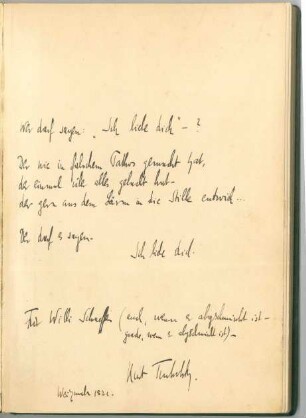 Wer darf sagen: „Ich liebe dich" – ?
Der nie in falschem Pathos gemacht hat,
der einmal alles gelacht hat –
der gern aus dem Lärm in die Stille entwich ..
Der darf es sagen.
Ich liebe dich.
Für Willi Schaeffers (auch, wenn er abgeschminkt ist –
grade, wenn er abgeschminkt ist) –
Kurt Tucholsky.
Weihnacht 1921.